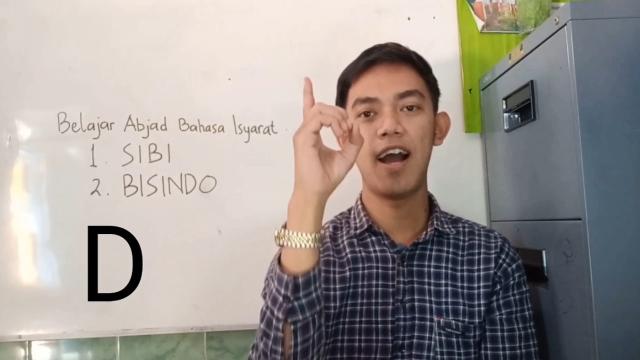 Belajar Abjad Bahasa Isyarat
1. SIBI
2. BISINDO
D